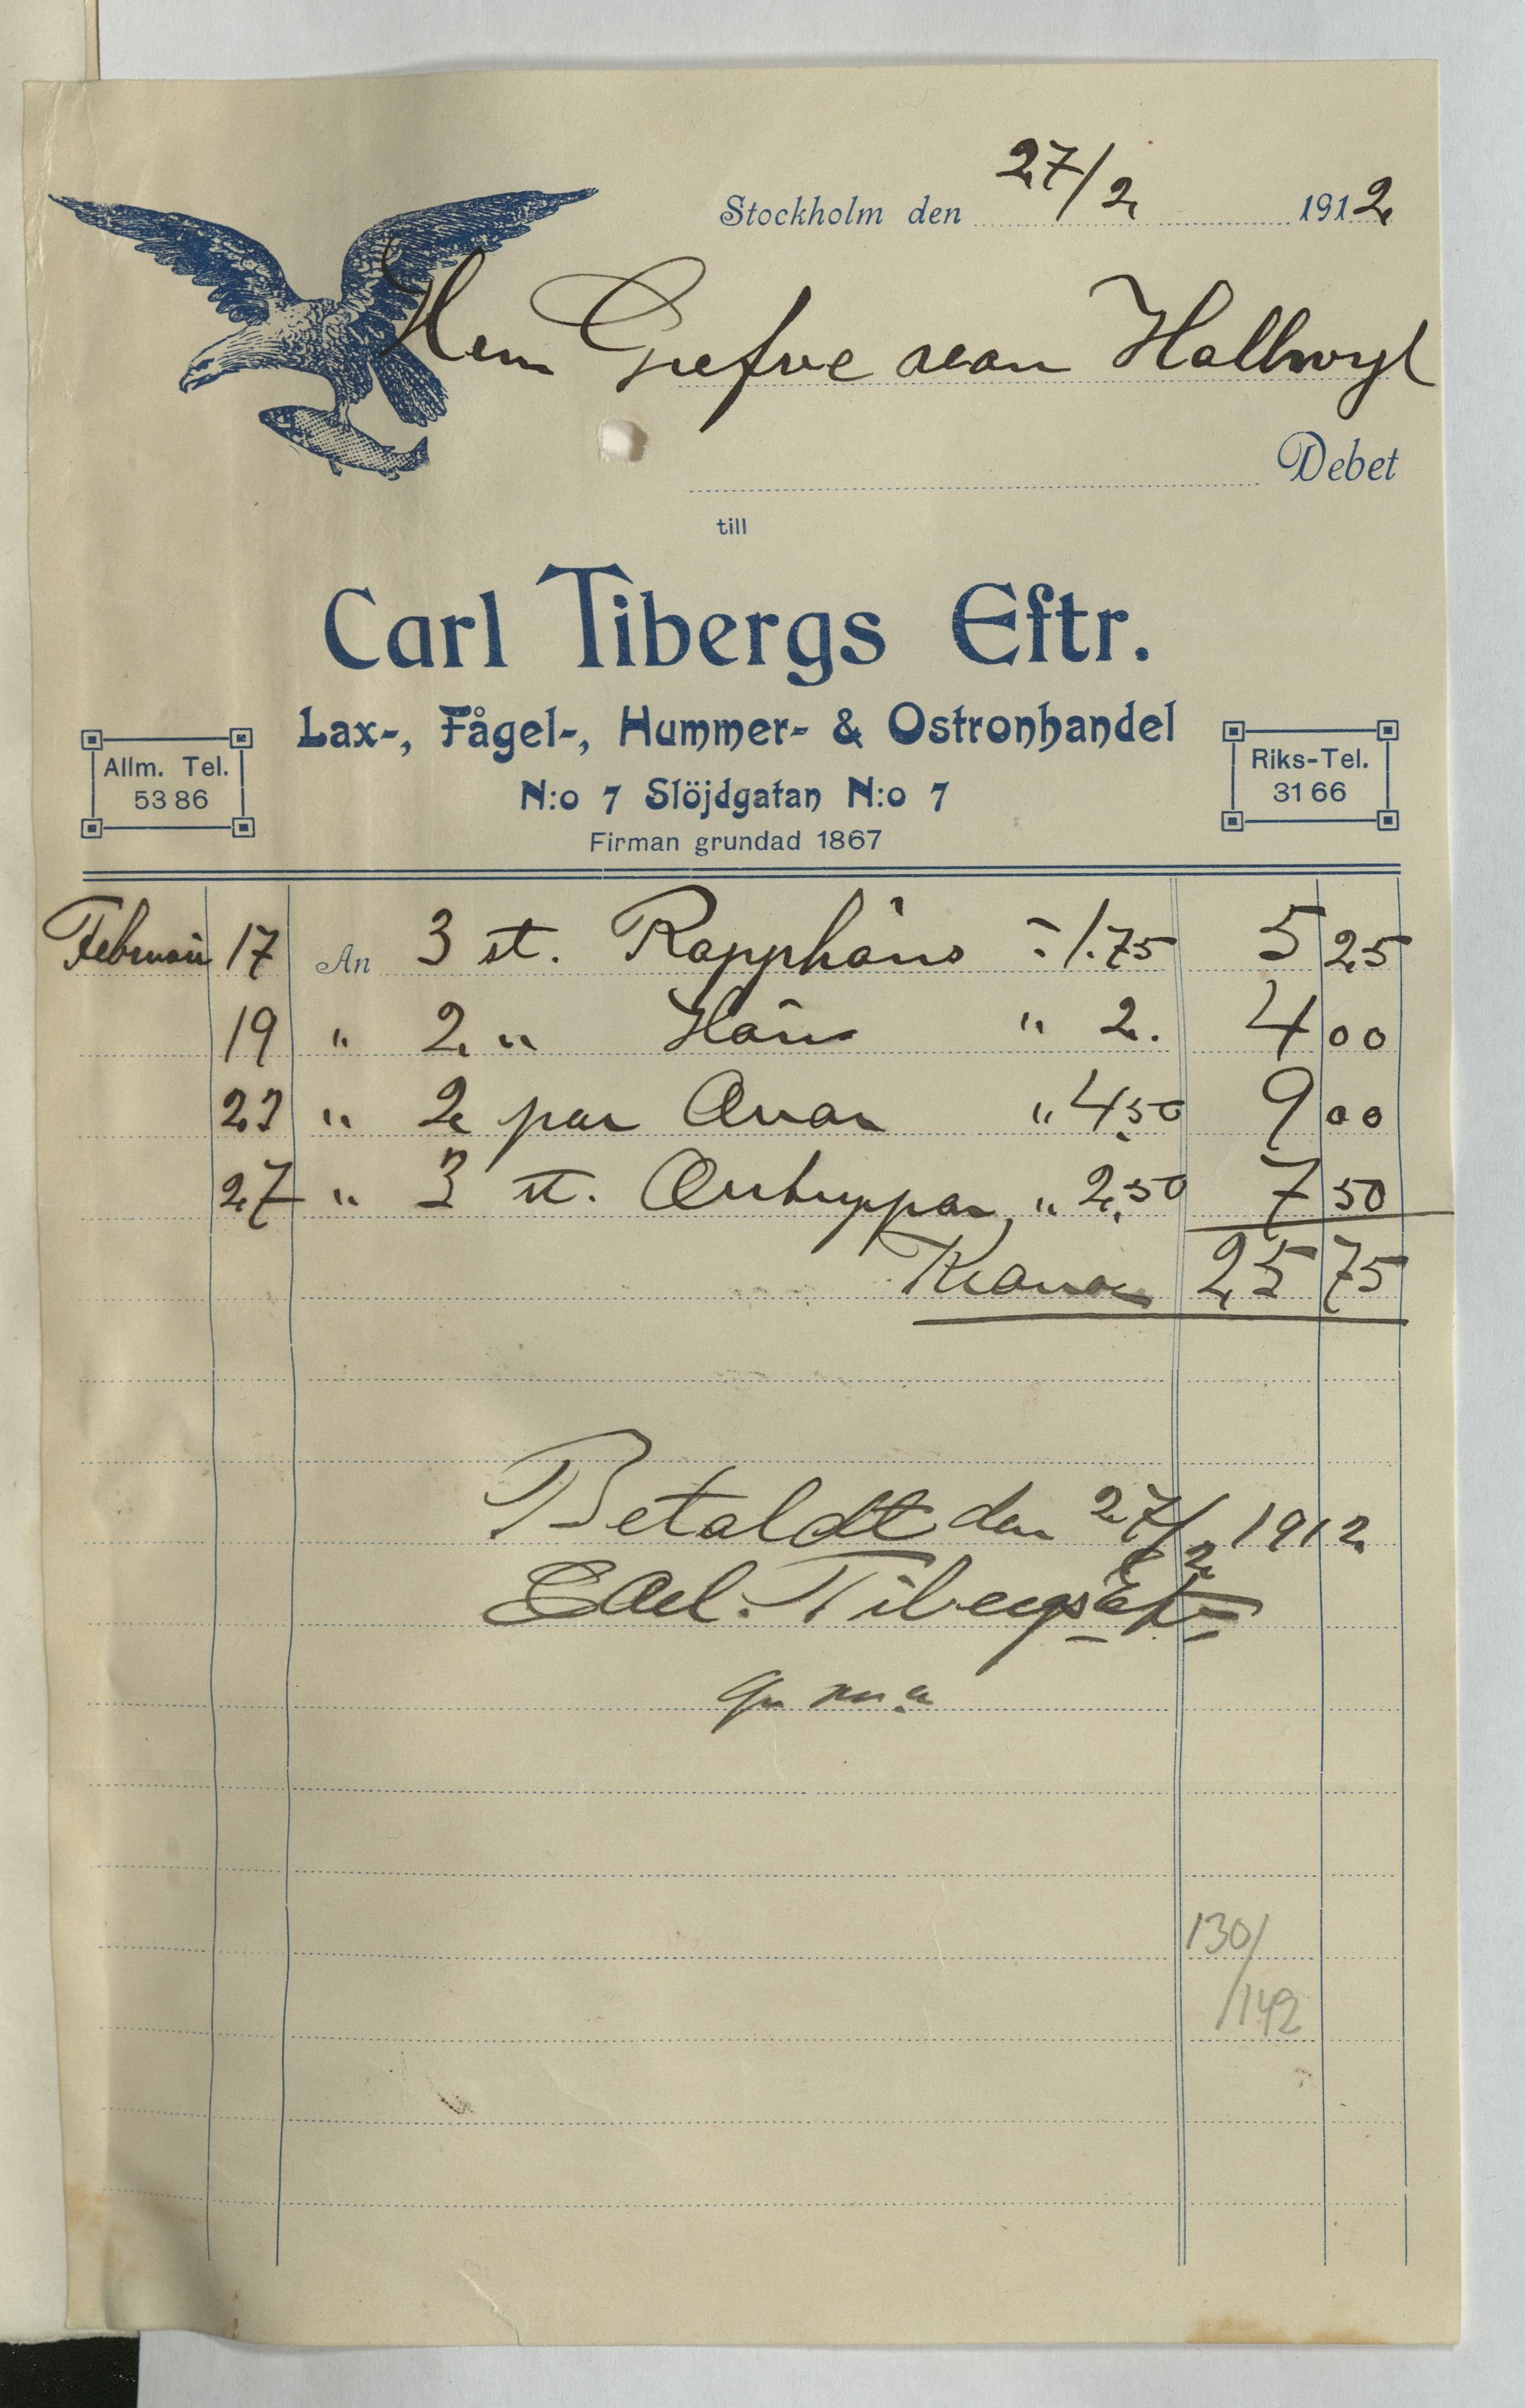 Stockholm den 27/2 1912
Herr Grefve von Hallwyl
Debet
till
Carl Tibergs Eftr.
Lax-, Fågel-, Hummer- & Ostronhandel
Allm. Tel. 53 86
N:o 7 Slöjdgatan N:o 7
Riks-Tel. 31 66
Firman grundad 1867
Februari 17 An 3 st. Rapphöns 1.75 5 25
19 " 2 " Höns " 2. 4 00
23 " 2 par Orrar " 4,50 9 00
27 " 3 st. Orrtuppar " 2,50 7 50
Kronor 25 75
Betaldt den 27/2 1912
Carl Tibergs Eftr
130/
/142